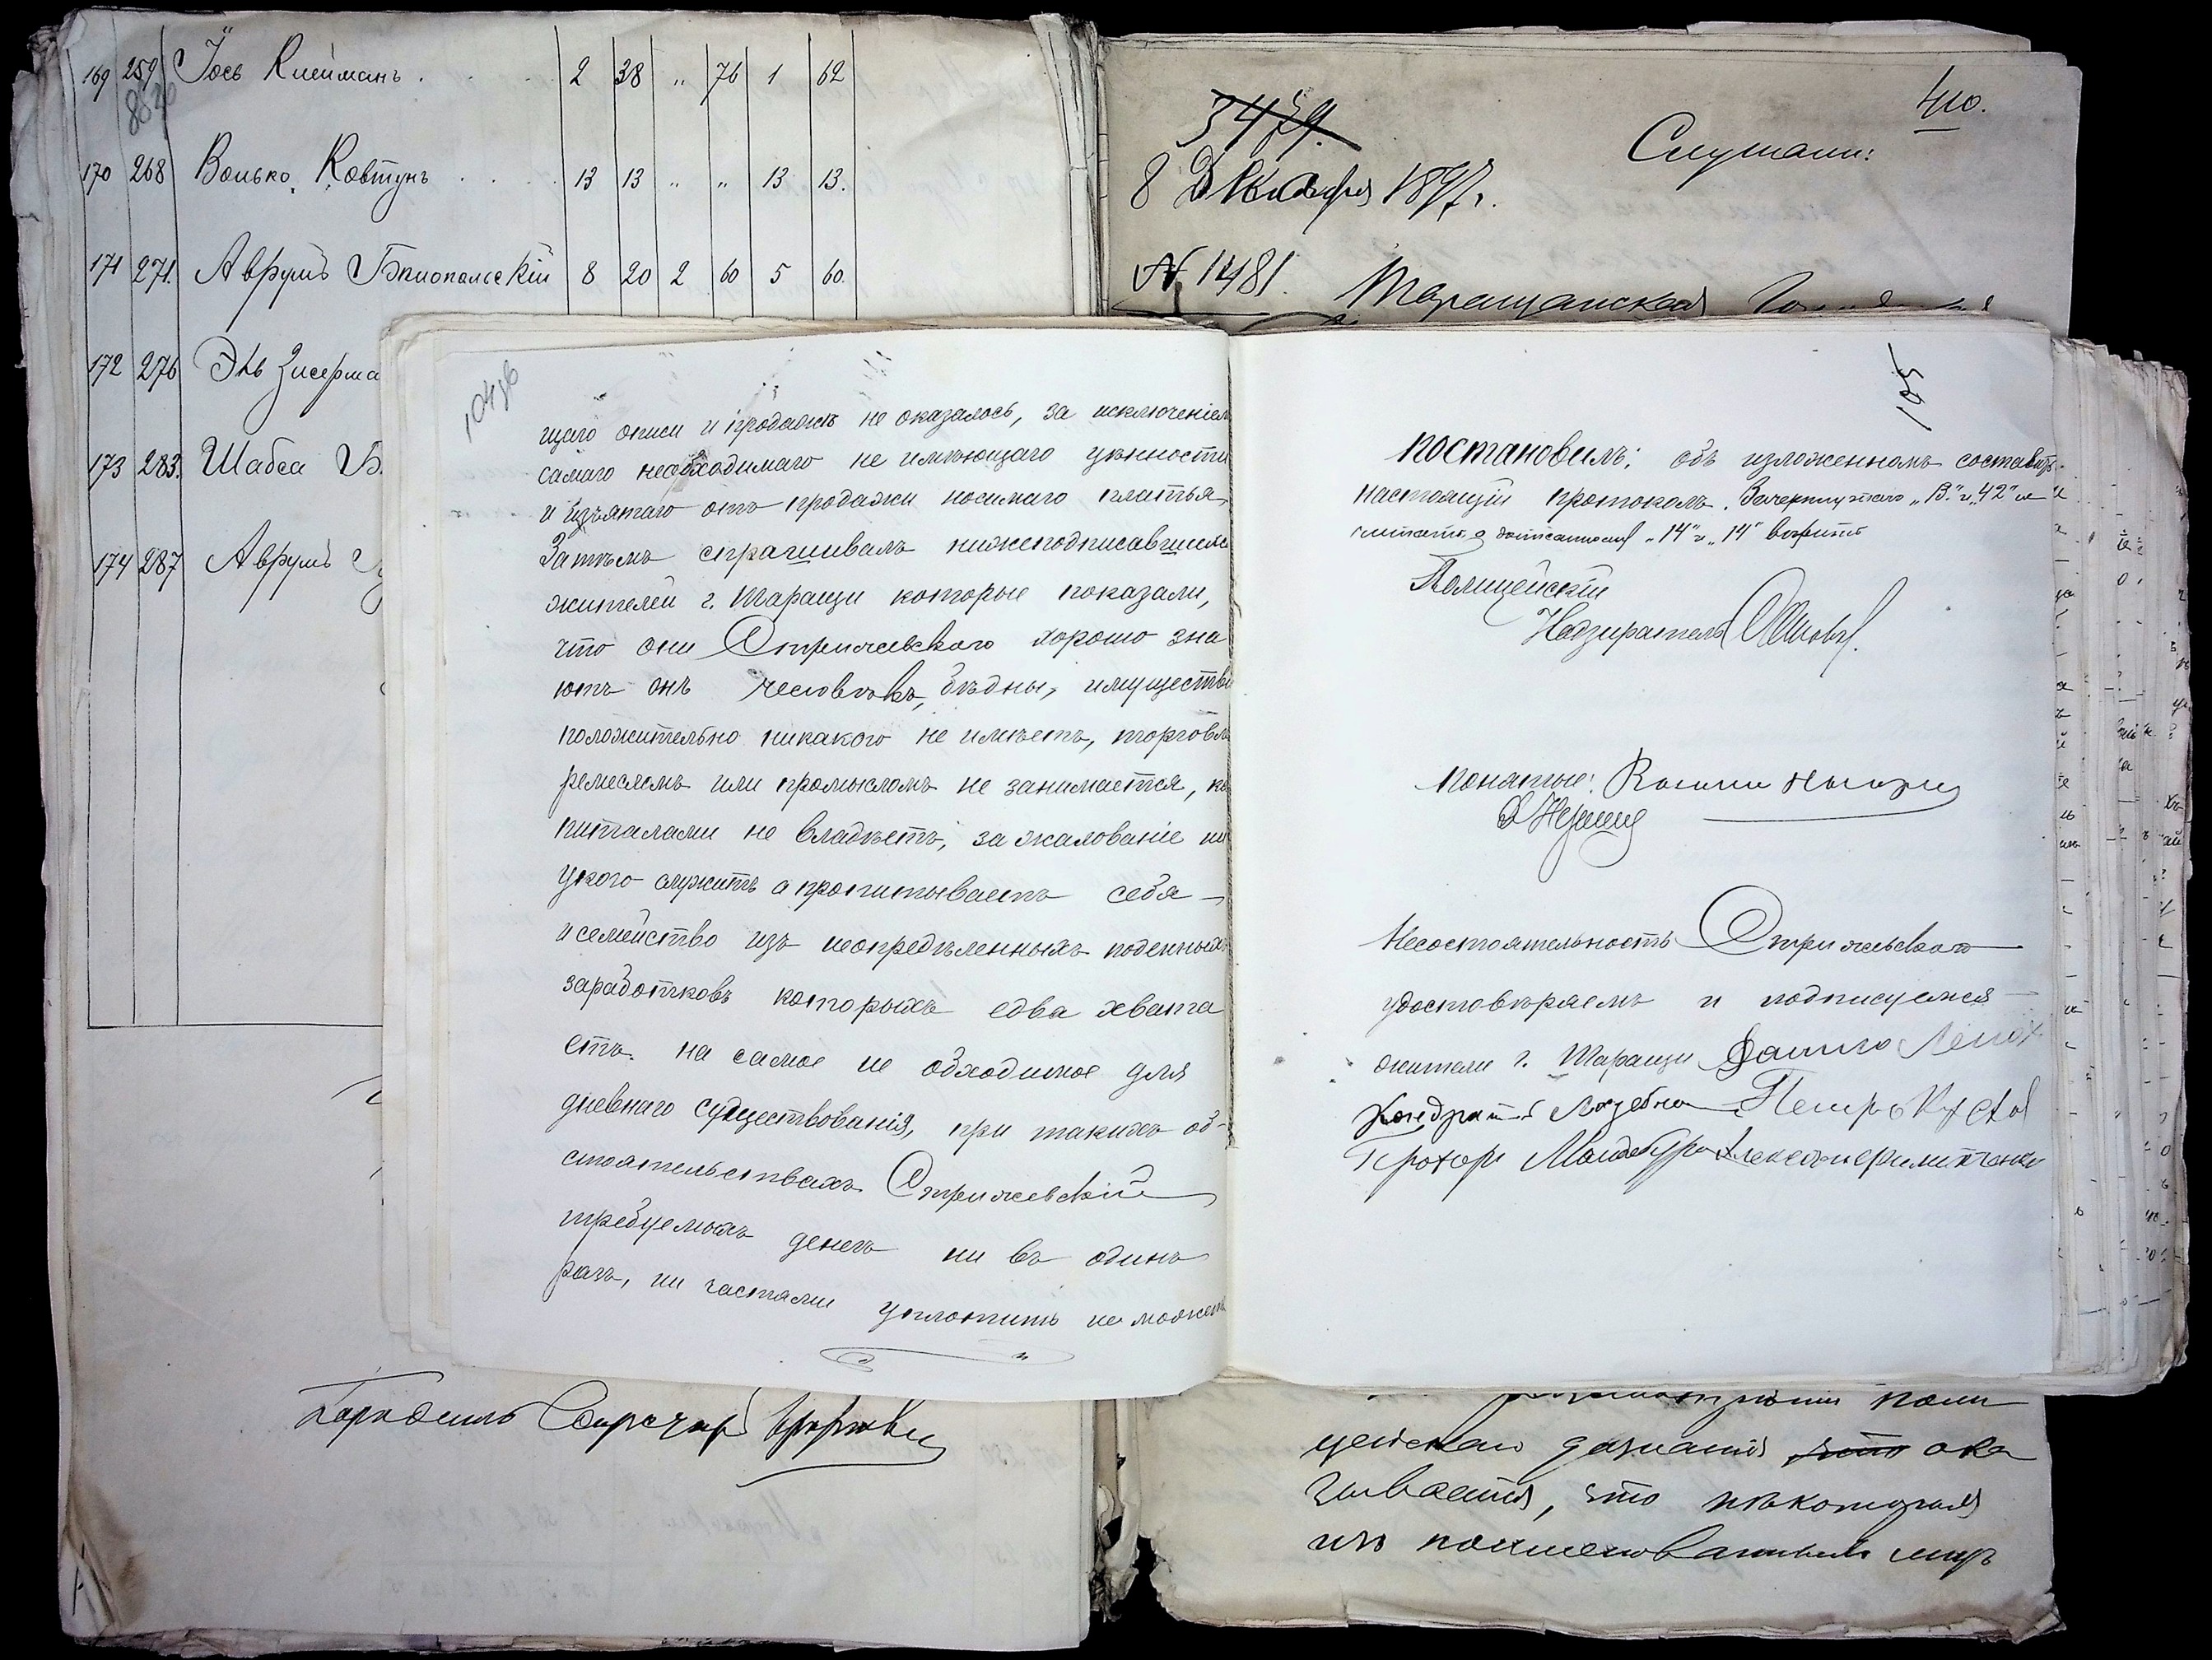 169 259 Іось Клейманъ . 2 38 „ 76 1 62
170 268 Волько Ковтунъ . . . 13 13 „ „ 13 13.
171 271. Аврумъ Бялопольскій 8 20 2 60 5 60.
172 276 Эль Зисерма
173 283. Шабса Б
174 287 Аврумъ
3479.
8 Декабря 1897 г.
№ 1481.
410.
Слушали:
Таращанская
104 об
щаго описи и продажѣ не оказалось, за исключеніем
самаго необходимаго не имѣющаго цѣнности
и изъятаго отъ продажи носимаго платья,
Затѣмъ спрашивалъ нижеподписавшихся
жителей г. Таращи которые показали,
что они Стрижевского хорошо зна
ютъ онъ человѣкъ, бѣдны, имущества
положительно никакого не имѣетъ, торговл
ремесломъ или промысломъ не занимается, ка
питалами не владѣетъ, за жалованіе ни
укого служитъ а пропитываетъ себя
и семейство изъ неопредѣленныхъ поденных
заработковъ которыхъ едва хвата
етъ на самое не обходимое для
дневнаго существованія, при такихъ об-
стоятельствахъ Стрижевскій
требуемыхъ денегъ ни въ одинъ
разъ, ни частями уплотить не можетъ
105
постановилъ: объ изложенномъ составить
настоящій протоколъ. Зачеркнутаго „13" и „42" не
считать а дописанному „14" и „14" вѣрить
Полицейскій
Надзиратель
понятые:
Несостоятельность Стрижевского
удостовѣряемъ и подписуемся
жители г. Таращи Данило
Кондратъ Лазебна Петро
Прохоръ Александръ
Городской Староста
поли
цейскаго дознанія что ока
зывается, что нѣкоторыя
изъ поименованныхъ лицъ